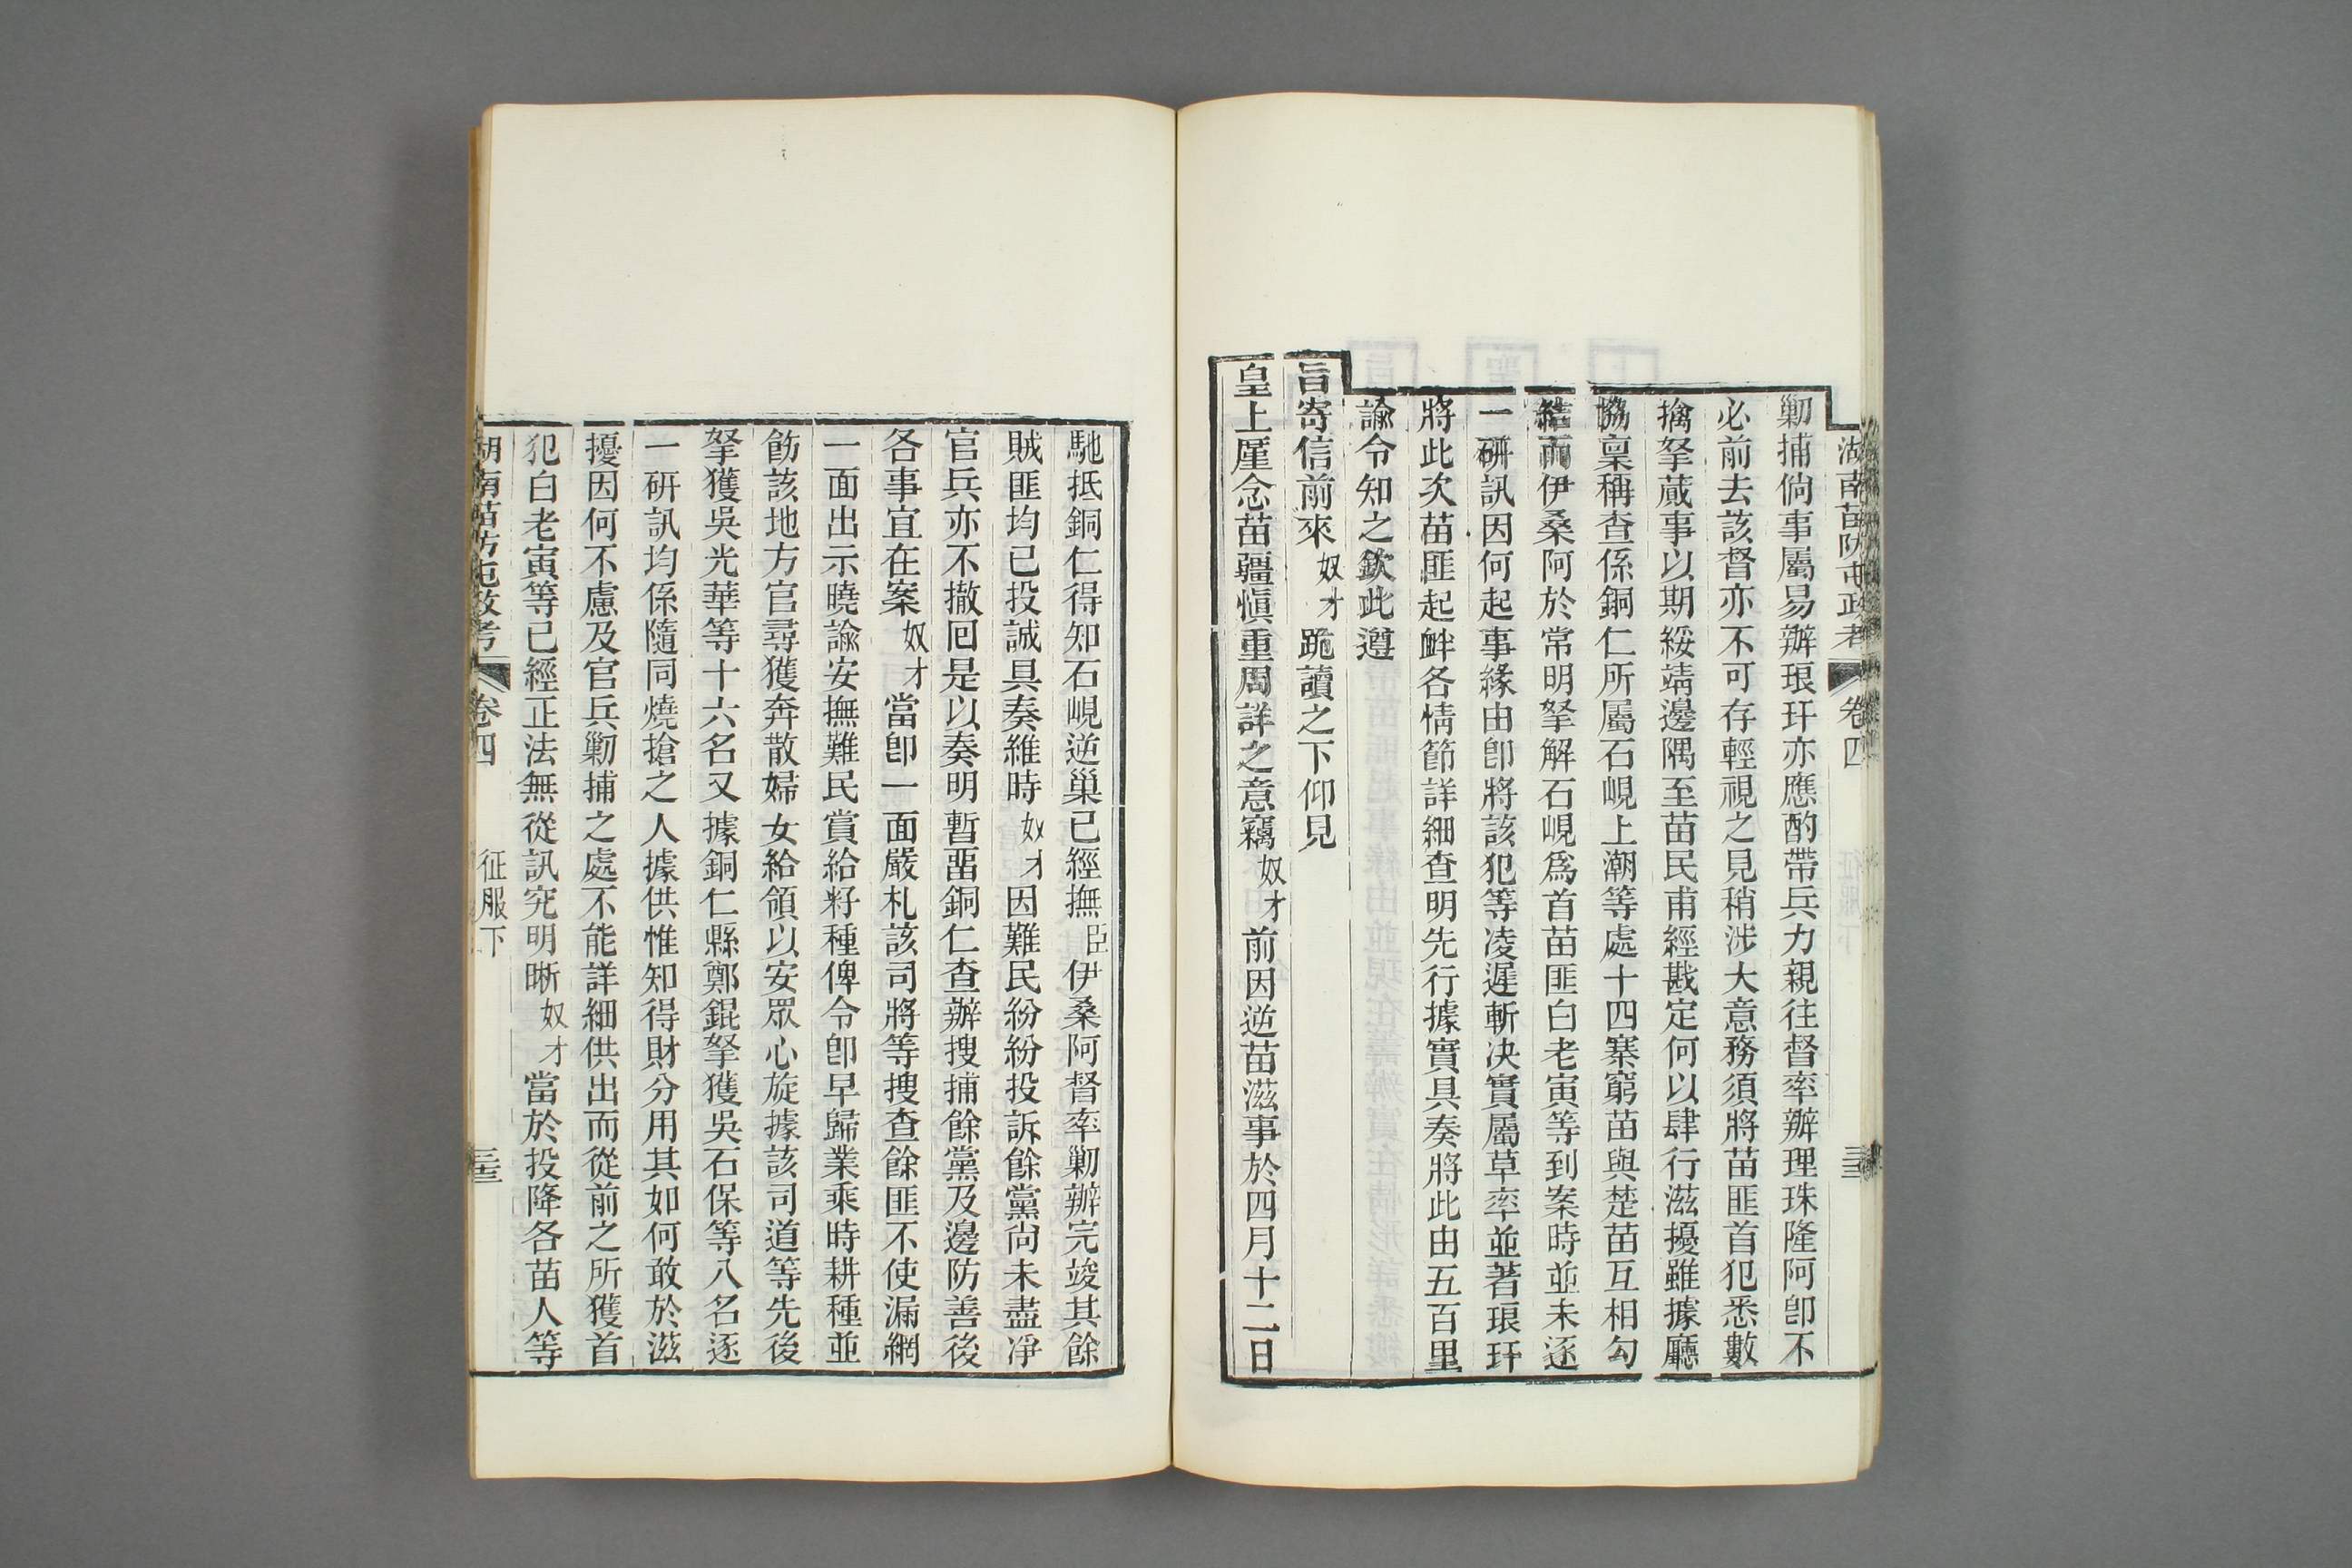 湖南苗防屯政考 卷四
勦捕倘事屬易辦琅玕亦應酌帶兵力親往督率辦理珠隆阿卽不
必前去該督亦不可存輕視之見稍涉大意務須將苗匪首犯悉數
擒拏蕆事以期綏靖邊隅至苗民甫經戡定何以肆行滋擾雖據廳
協稟稱查係銅仁所屬石峴上潮等處十四寨窮苗與楚苗互相勾
結而伊桑阿於常明拏解石峴爲首苗匪白老寅等到案時並未逐
一研訊因何起事緣由卽將該犯等凌遲斬决實屬草率並著琅玕
將此次苗匪起衅各情節詳細查明先行據實具奏將此由五百里
諭令知之欽此遵
旨寄信前來奴才跪讀之下仰見
皇上廑念苗疆愼重周詳之意竊奴才前因逆苗滋事於四月十二日
馳抵銅仁得知石峴逆巢已經撫臣伊桑阿督率勦辦完竣其餘
賊匪均已投誠具奏維時奴才因難民紛紛投訴餘黨尙未盡淨
官兵亦不撤回是以奏明暫畱銅仁查辦搜捕餘黨及邊防善後
各事宜在案奴才當卽一面嚴札該司將等搜查餘匪不使漏網
一面出示曉諭安撫難民賞給籽種俾令卽早歸業乘時耕種並
飭該地方官尋獲奔散婦女給領以安眾心旋據該司道等先後
拏獲吳光華等十六名又據銅仁縣鄭錕拏獲吳石保等八名逐
一研訊均係隨同燒搶之人據供惟知得財分用其如何敢於滋
擾因何不慮及官兵勦捕之處不能詳細供出而從前之所獲首
犯白老寅等已經正法無從訊究明晰奴才當於投降各苗人等
湖南苗防屯政考 卷四 征服下 三十三